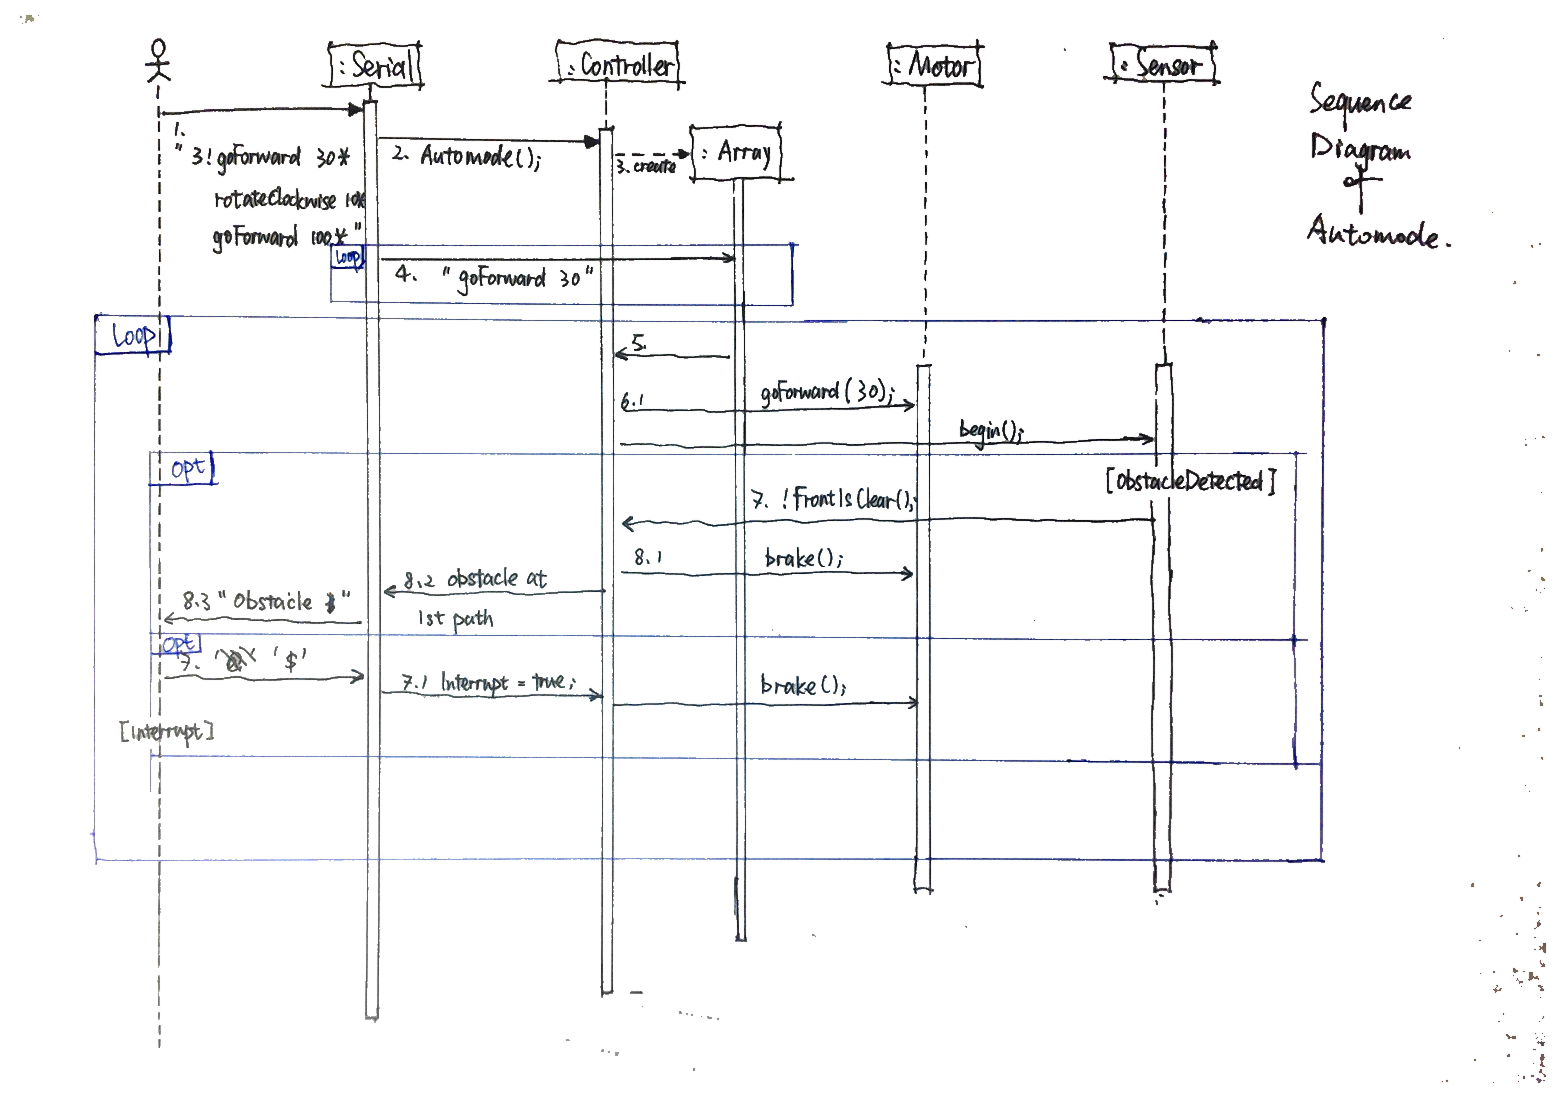 : Serial
: Controller
: Motor
: Sensor
: Array
Sequence
Diagram
of
Automode.
1.
" 3! goForward 30*
rotateClockwise 10*
goForward 100* "
2. Automode();
3. create
loop
4. " goForward 30"
Loop
5.
6.1 goForward (30);
begin();
opt
[ObstacleDetected]
7. !FrontIsClear();
8.1 brake();
8.2 obstacle at
1st path
8.3 "Obstacle "
opt
7. '$'
7.1 Interrupt = true;
brake();
[Interrupt]